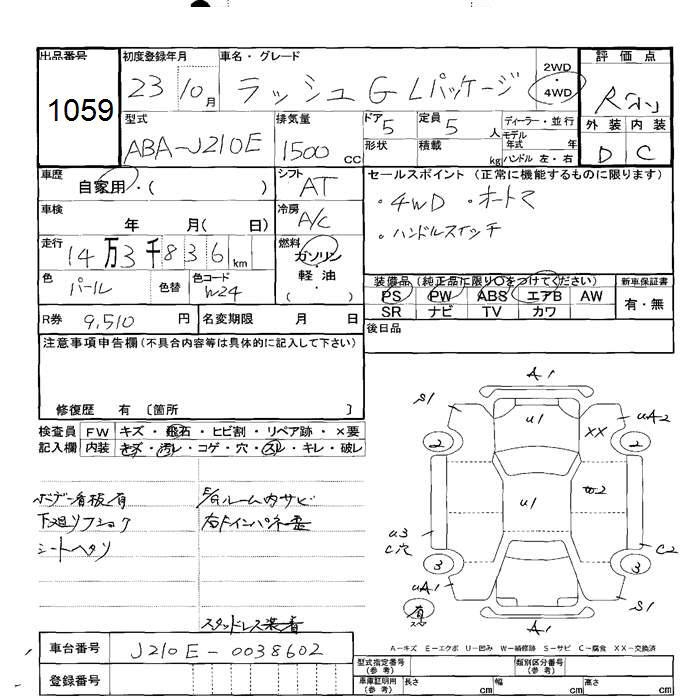 出品番号 初度登録年月 車名・グレード 2WD・4WD 評価点
1059 23 10月 ラッシュ G Lパッケージ R
型式 排気量 ドア 定員 ディーラー・並行 外装 内装
ABA-J210E 1500cc 5 5人 モデル年式 年 D C
形状 積載 kg ハンドル 左・右
車歴 シフト セールスポイント (正常に機能するものに限ります)
自家用・( ) AT ・4WD ・オートマ
車検 冷房 ・ハンドルスイッチ
年 月( 日) A/C
走行 燃料
14万3千836km ガソリン・軽油
色 色替 色コード ( ) 装備品 (純正品に限り○をつけてください) 新車保証書
パール W24 PS PW ABS エアB AW 有・無
SR ナビ TV カワ
R券 9,510円 名変期限 月 日 後日品
注意事項申告欄(不具合内容等は具体的に記入して下さい)
修復歴 有 〔箇所 〕
検査員 FW キズ・飛石・ヒビ割・リペア跡・×要
記入欄 内装 キズ・汚レ・コゲ・穴・スレ・キレ・破レ
ボデー看板有 F/Gルーム内サビ
シートヘタリ
スタッドレス装着
A1
S1 U1 XX UA2
2 2
U1
U3 C穴 C2
3 3
UA1 有 S1
A1
A-キズ E-エクボ U-凹み W-補修跡 S-サビ C-腐食 XX-交換済
車台番号 J210E-0038602
型式指定番号(参考) 類別区分番号(参考)
登録番号 車庫証明用(参考) 長さ cm 幅 cm 高さ cm